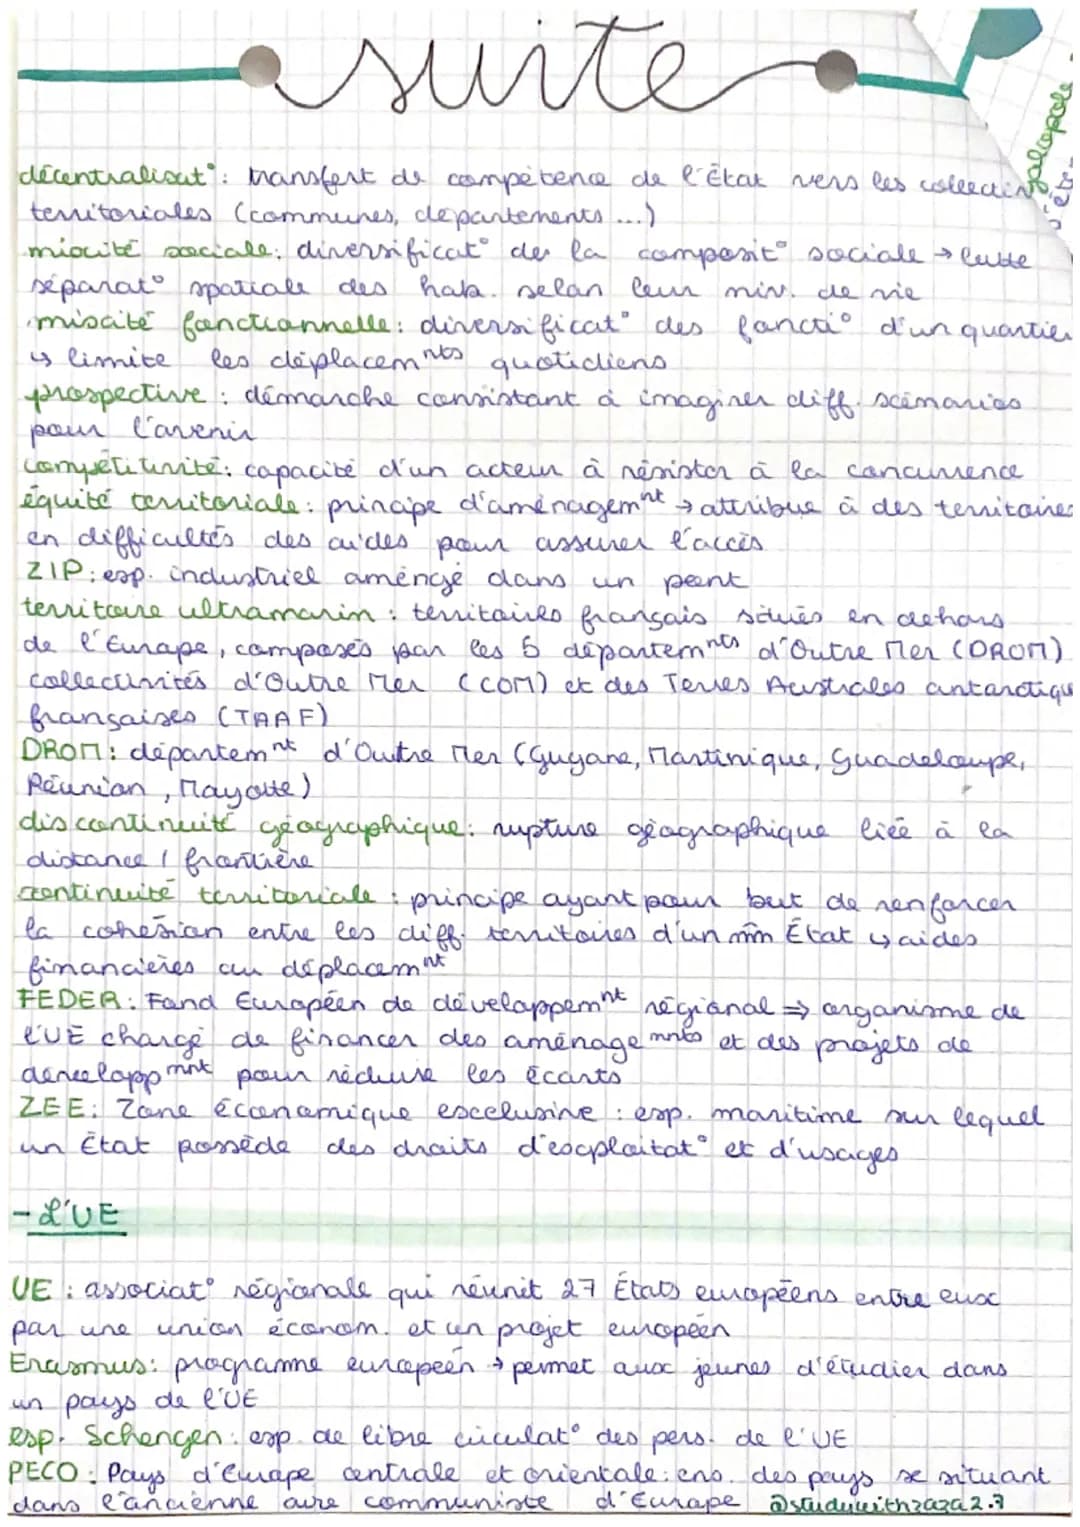 suite
décentralisat° : transfert de compétence de l'État vers les collectiv
territoriales (communes, départements ...)
mixité sociale : diversificat° de la composit° sociale → lutte
séparat° spatiale des hab. selon leur niv. de vie
mixité fonctionnelle : diversificat° des foncti° d'un quartier
↳ limite les déplacemnts quotidiens
prospective : démarche consistant à imaginer diff. scénarios
pour l'avenir
compétitivité : capacité d'un acteur à résister à la concurrence
équité territoriale : principe d'aménagemnt → attribue à des territoires
en difficultés des aides pour assurer l'accès
ZIP : esp. industriel aménagé dans un port
territoire ultramarin : territoires français situés en dehors
de l'Europe, composés par les 5 départemnts d'Outre Mer (DROM)
collectivités d'Outre Mer (COM) et des Terres Australes antarctique
françaises (TAAF)
DROM : départemnt d'Outre Mer (Guyane, Martinique, Guadeloupe,
Réunion, Mayotte)
discontinuité géographique : rupture géographique liée à la
distance / frontière
continuité territoriale : principe ayant pour but de renforcer
la cohésion entre les diff. territoires d'un mm État ↳ aides
financières au déplacemnt
FEDER : Fond Européen de développemnt régional ⇒ organisme de
l'UE chargé de financer des aménagemnts et des projets de
développmnt pour réduire les écarts
ZEE : Zone économique exclusive : esp. maritime sur lequel
un État possède des droits d'exploitat° et d'usages
- L'UE
UE : associat° régionale qui réunit 27 États européens entre eux
par une union économ. et un projet européen
Erasmus : programme européen → permet aux jeunes d'étudier dans
un pays de l'UE
esp. Schengen : esp. de libre circulat° des pers. de l'UE
PECO : Pays d'Europe centrale et orientale : ens. des pays se situant
dans l'ancienne aire communiste d'Europe @studywithzaza2.7